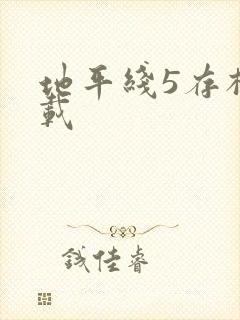 地平线5存档
载
钱佳睿